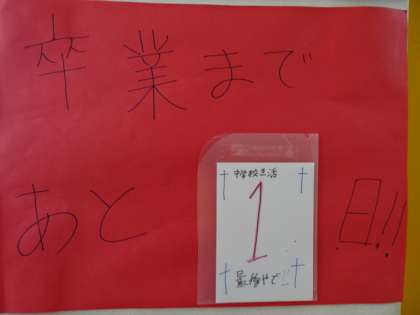 卒業まで
あと
中学校生活
1
最後やで!!
日!!